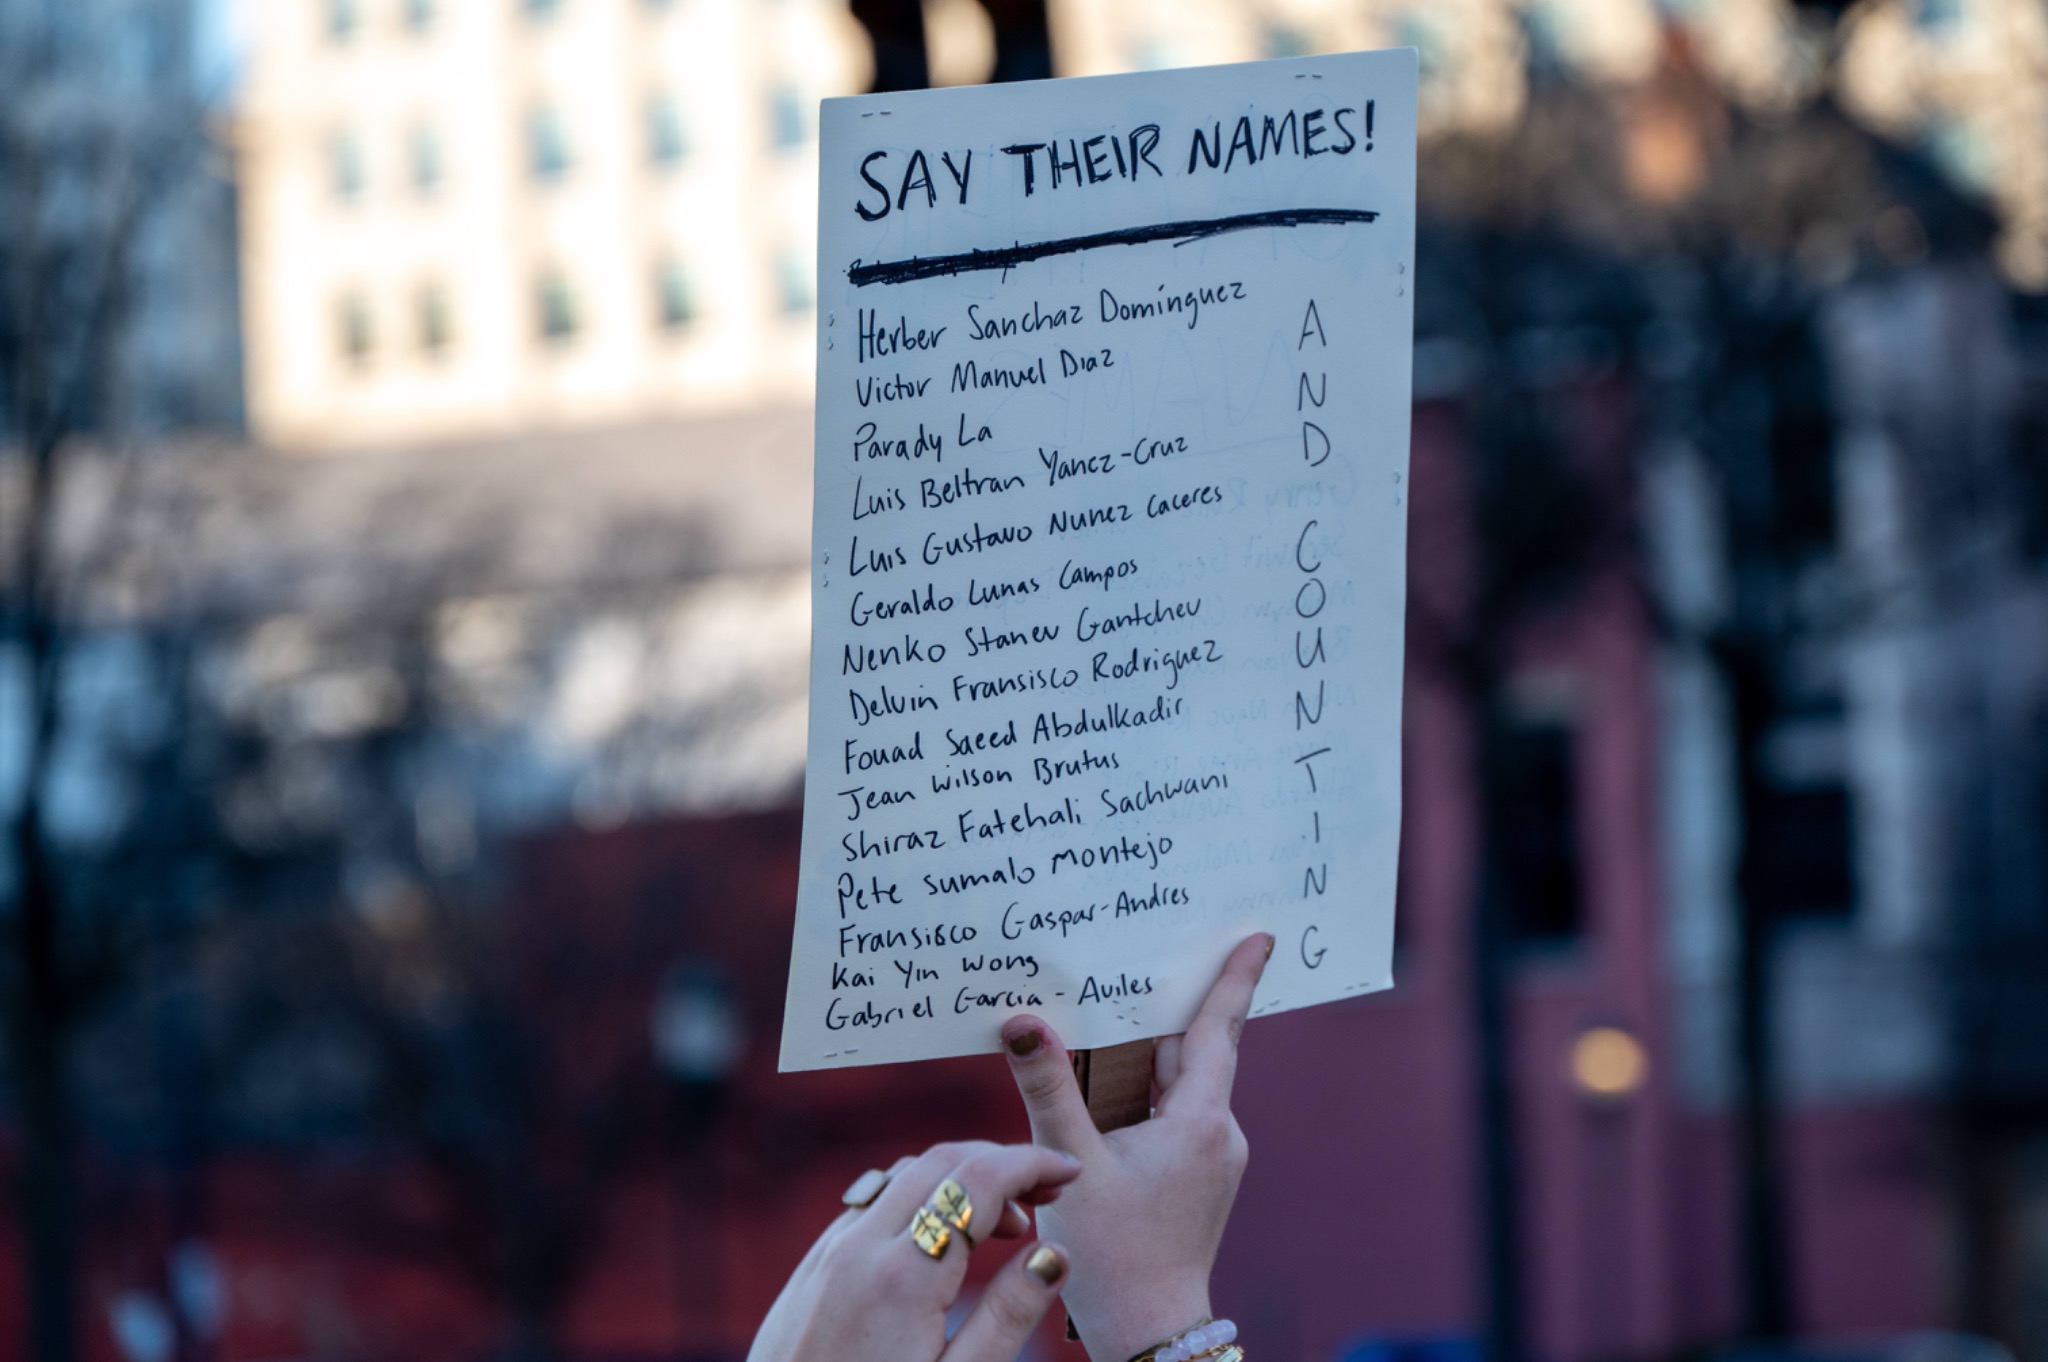 SAY THEIR NAMES!
Herber Sanchaz Domínguez
Victor Manuel Diaz
Parady La
Luis Beltran Yanez-Cruz
Luis Gustavo Nunez Caceres
Geraldo Lunas Campos
Nenko Stanev Gantchev
Delvin Fransisco Rodriguez
Fouad Saeed Abdulkadir
Jean Wilson Brutus
Shiraz Fatehali Sachwani
Pete Sumalo Montejo
Fransisco Gaspar-Andres
Kai Yin Wong
Gabriel Garcia-Aviles
AND COUNTING